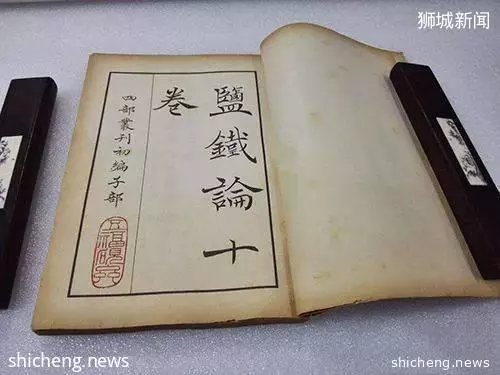 狮城新闻
鹽鐵論十
卷
四部叢刊初編子部
shicheng.news
shicheng.news